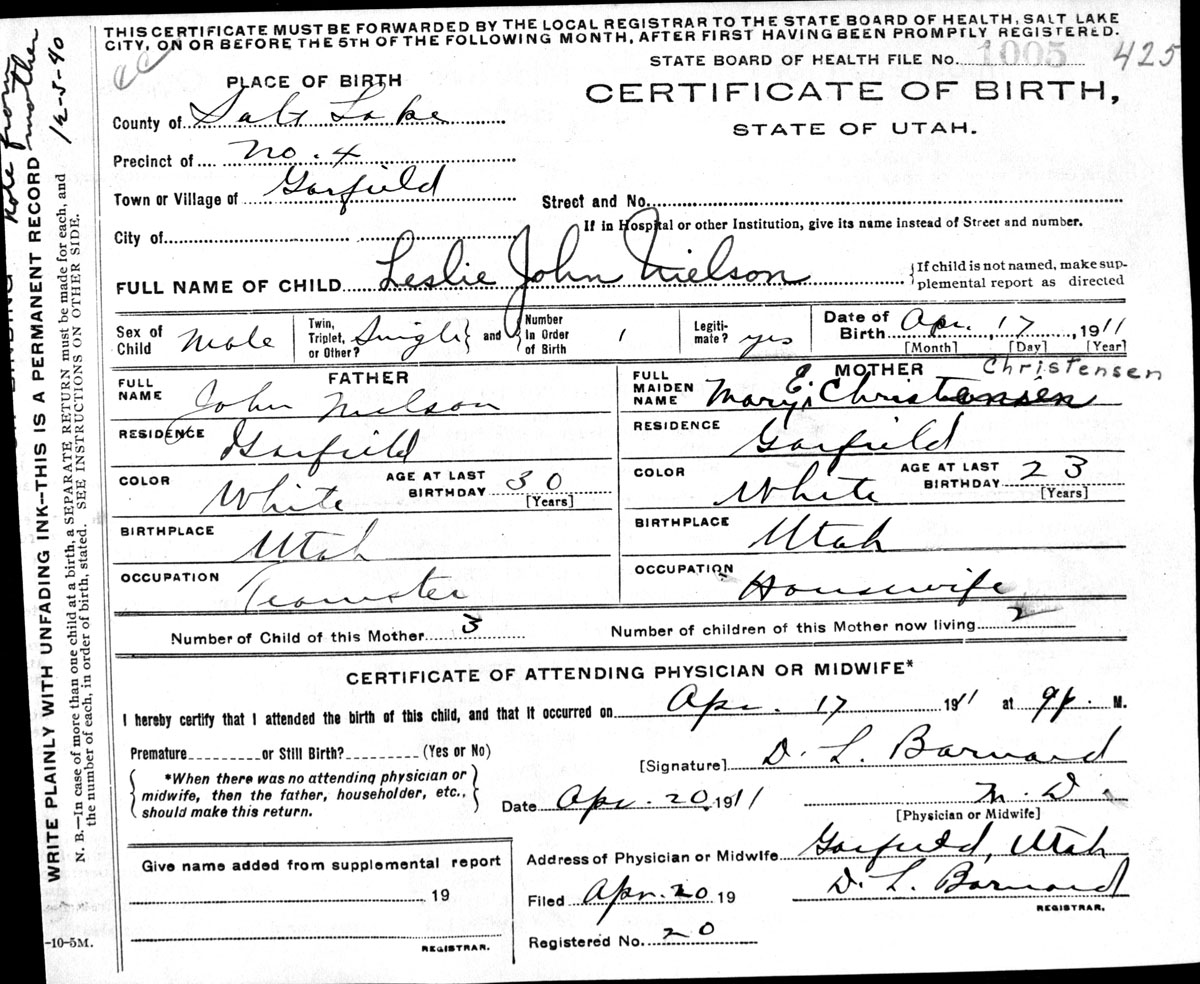 THIS CERTIFICATE MUST BE FORWARDED BY THE LOCAL REGISTRAR TO THE STATE BOARD OF HEALTH, SALT LAKE
CITY, ON OR BEFORE THE 5TH OF THE FOLLOWING MONTH, AFTER FIRST HAVING BEEN PROMPTLY REGISTERED.
STATE BOARD OF HEALTH FILE No. 1005 425
PLACE OF BIRTH
CERTIFICATE OF BIRTH,
STATE OF UTAH.
County of Salt Lake
Precinct of No. 4
Town or Village of Garfield
Street and No.
City of
If in Hospital or other Institution, give its name instead of Street and number.
FULL NAME OF CHILD Leslie John Nielson
{If child is not named, make sup-
plemental report as directed
Sex of Child Male
Twin, Triplet, or Other? Single } and { Number In Order of Birth 1
Legiti-mate? yes
Date of Birth Apr. 17, 1911
[Month] [Day] [Year]
FATHER
FULL NAME John Nielson
RESIDENCE Garfield
COLOR White
AGE AT LAST BIRTHDAY 30
[Years]
BIRTHPLACE Utah
OCCUPATION Teamster
MOTHER Christensen
FULL MAIDEN NAME Mary E. Christensen
RESIDENCE Garfield
COLOR White
AGE AT LAST BIRTHDAY 23
[Years]
BIRTHPLACE Utah
OCCUPATION Housewife
Number of Child of this Mother 3
Number of children of this Mother now living 2
CERTIFICATE OF ATTENDING PHYSICIAN OR MIDWIFE*
I hereby certify that I attended the birth of this child, and that it occurred on Apr. 17 1911 at 9 P. M.
Premature or Still Birth? (Yes or No)
{ *When there was no attending physician or
midwife, then the father, householder, etc.,
should make this return. }
[Signature] D. L. Barnard
Date Apr. 20, 1911
M. D.
[Physician or Midwife]
Give name added from supplemental report
19
REGISTRAR.
Address of Physician or Midwife Garfield, Utah
Filed Apr. 20 19
D. L. Barnard
REGISTRAR.
Registered No. 20
-10-5M.
WRITE PLAINLY WITH UNFADING INK—THIS IS A PERMANENT RECORD
N. B.—In case of more than one child at a birth a SEPARATE RETURN must be made for each, and
the number of each, in order of birth, stated. SEE INSTRUCTIONS ON OTHER SIDE.
Note from
mother
12-5-40